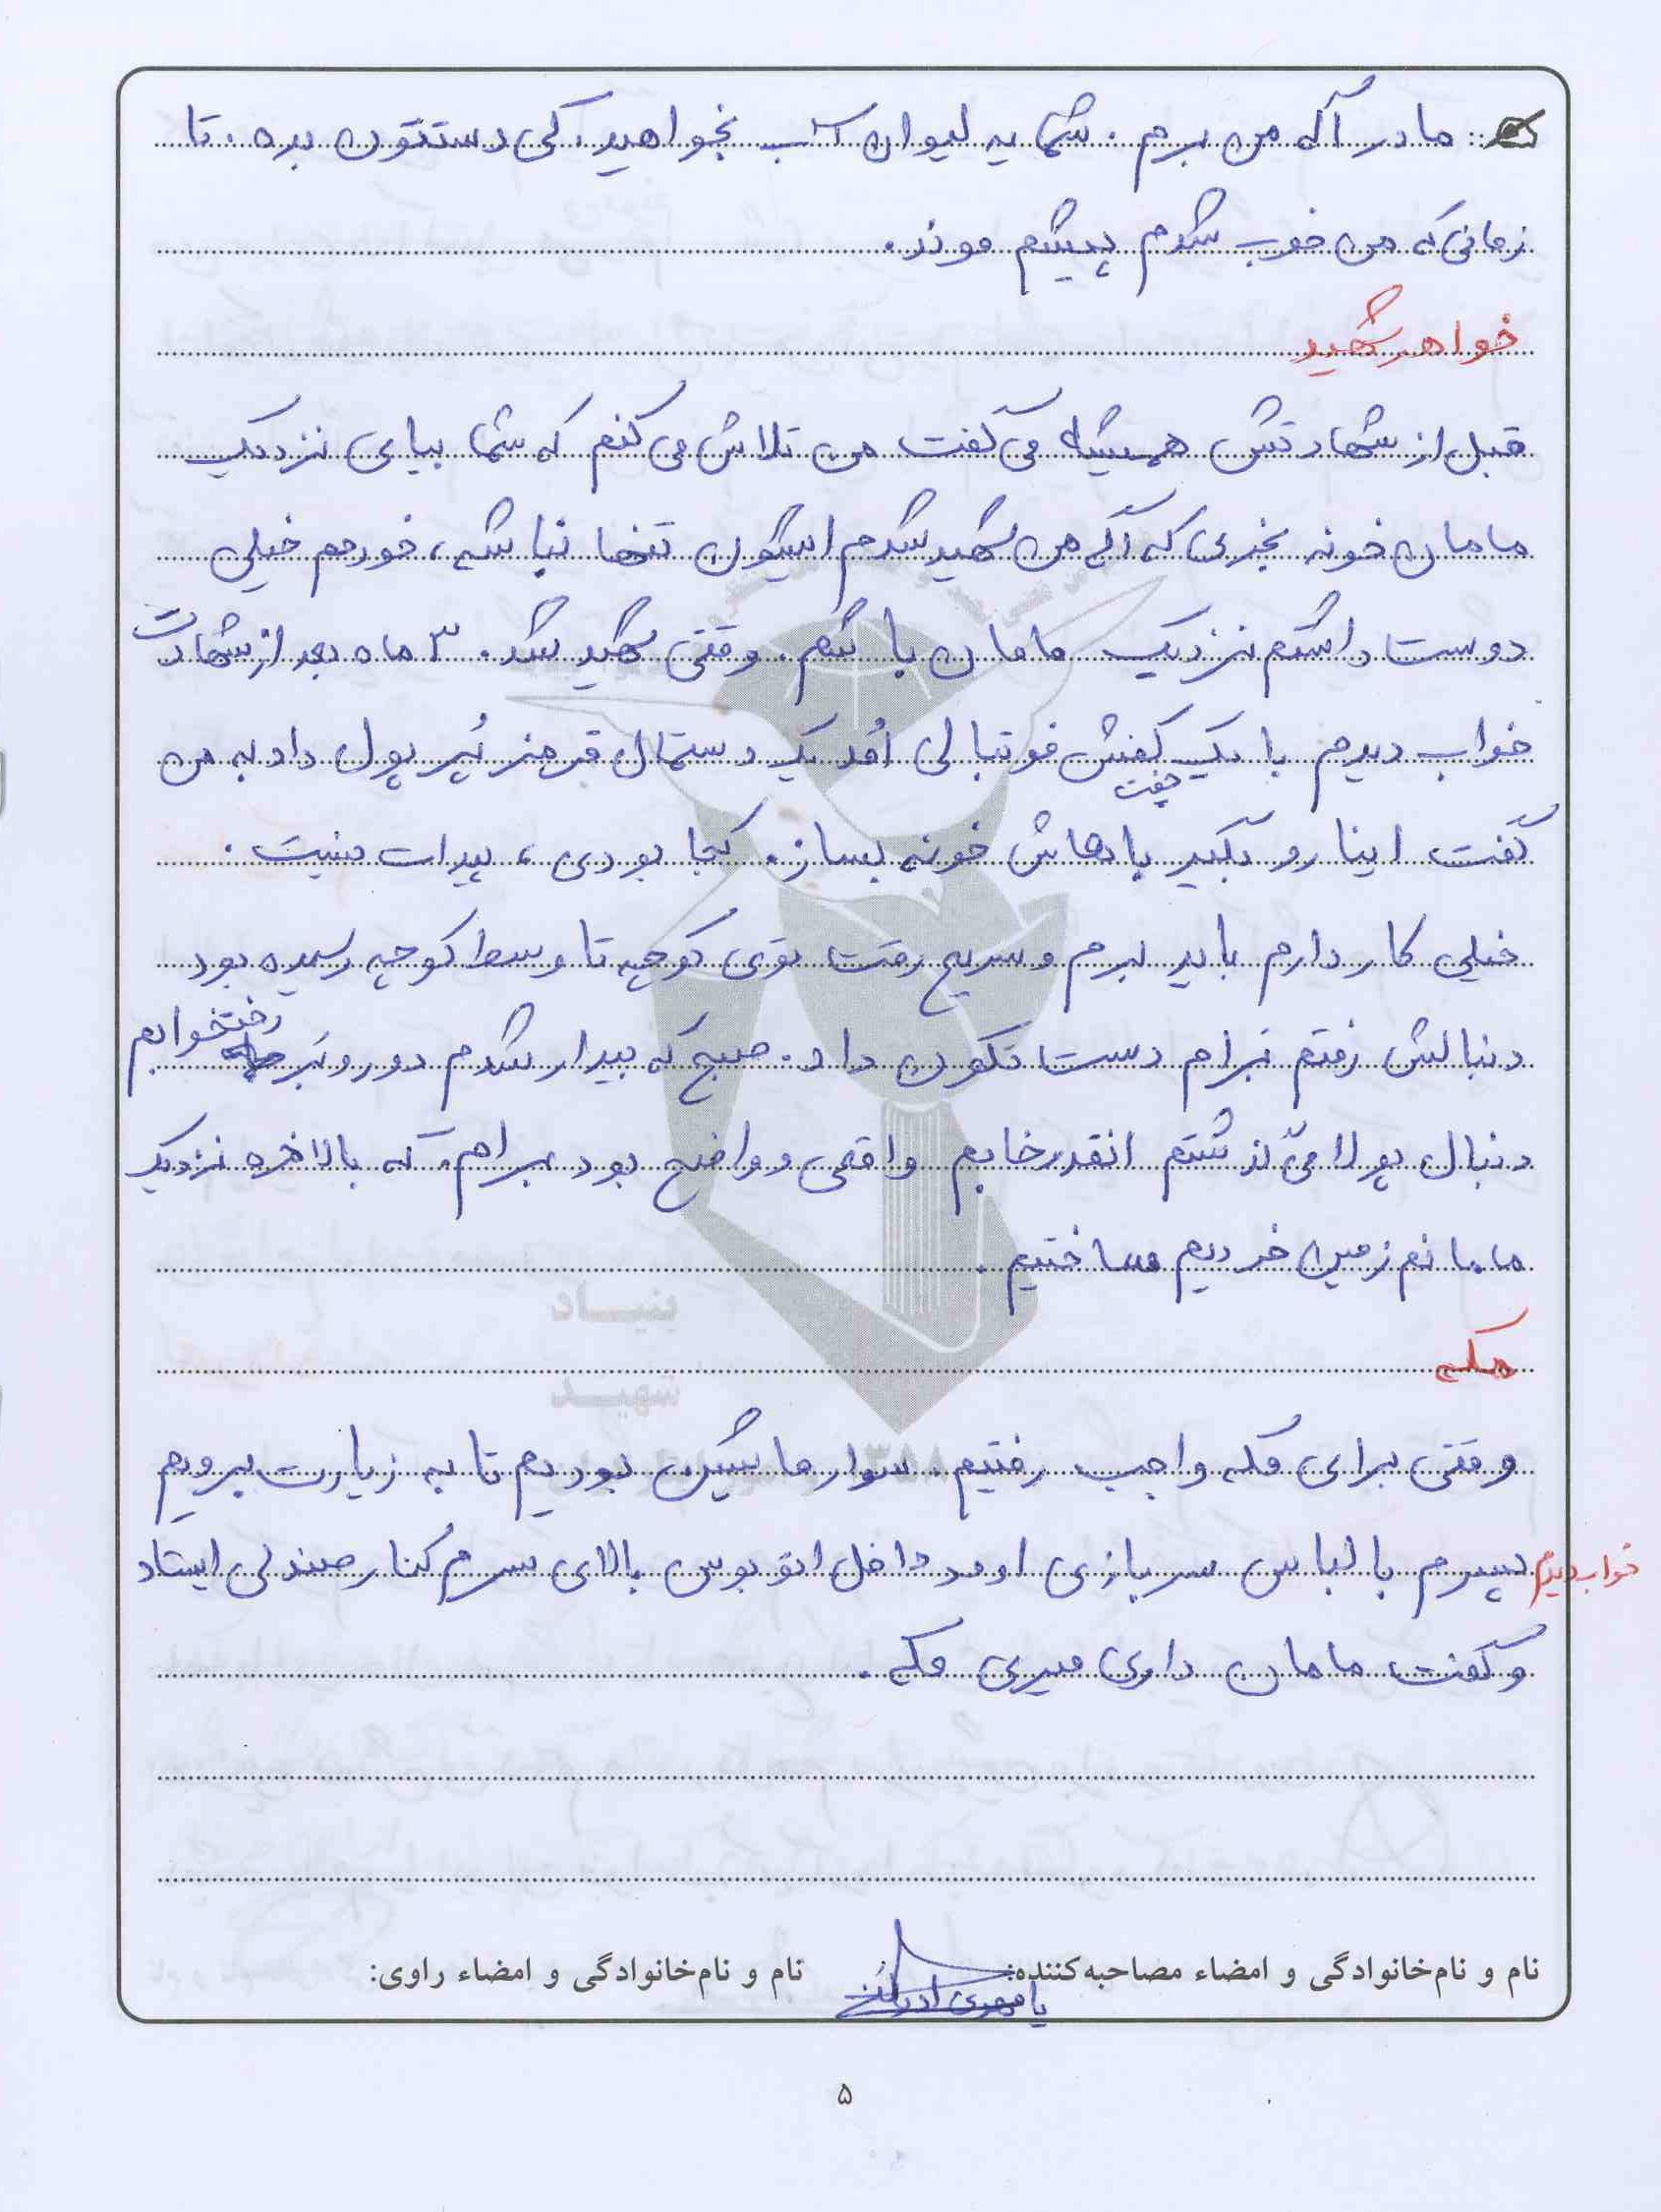 مادر اگه من برم. شما یه لیوان آب بخواهید. کی دستتون بده. تا
زمانی که من خوب شدم پیشم موند.
خواهر شهید
قبل از شهادتش همیشه می گفت من تلاش می کنم که شما بیای نزدیک
مامان خونه بخری که اگه من شهید شدم ایشون تنها نباشه، خودم خیلی
دوست داشتم نزدیک مامان باشم. وقتی شهید شد. ۳ ماه بعد از شهادت
خواب دیدم با یک جفت کفش فوتبالی اُمد یک دستمال قرمز پُر پول داد به من
گفت اینا رو بگیر باهاش خونه بساز. کجا بودی، پیدات نیست.
خیلی کار دارم باید برم و سریع رفت توی کوچه تا وسط کوچه رسیده بود
دنبالش رفتم برام دست تکون داد. صبح که بیدار شدم دور و بر رختخوابم
دنبال پولا می گشتم انقدر خابم واقعی و واضح بود برام. که بالاخره نزدیک
مامانم زمین خریدیم ساختیم.
مکه
وقتی برای مکه واجب رفتیم. سوار ماشین بودیم تا به زیارت برویم
خواب دیدم پسرم با لباس سربازی اومد داخل اتوبوس بالای سرم کنار صندلی ایستاد
و گفت مامان داری میری مکه.
نام و نام‌خانوادگی و امضاء مصاحبه‌کننده: نام و نام‌خانوادگی و امضاء راوی:
بنیاد
شهید
۵